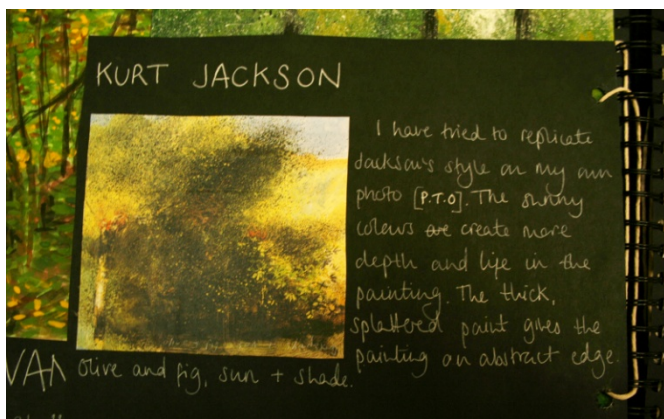 KURT JACKSON
I have tried to replicate
Jackson's style on my own
photo [P.T.O]. The sunny
colours are create more
depth and life in the
painting. The thick,
splattered paint gives the
painting an abstract edge.
VAN
Olive and fig, sun + shade.